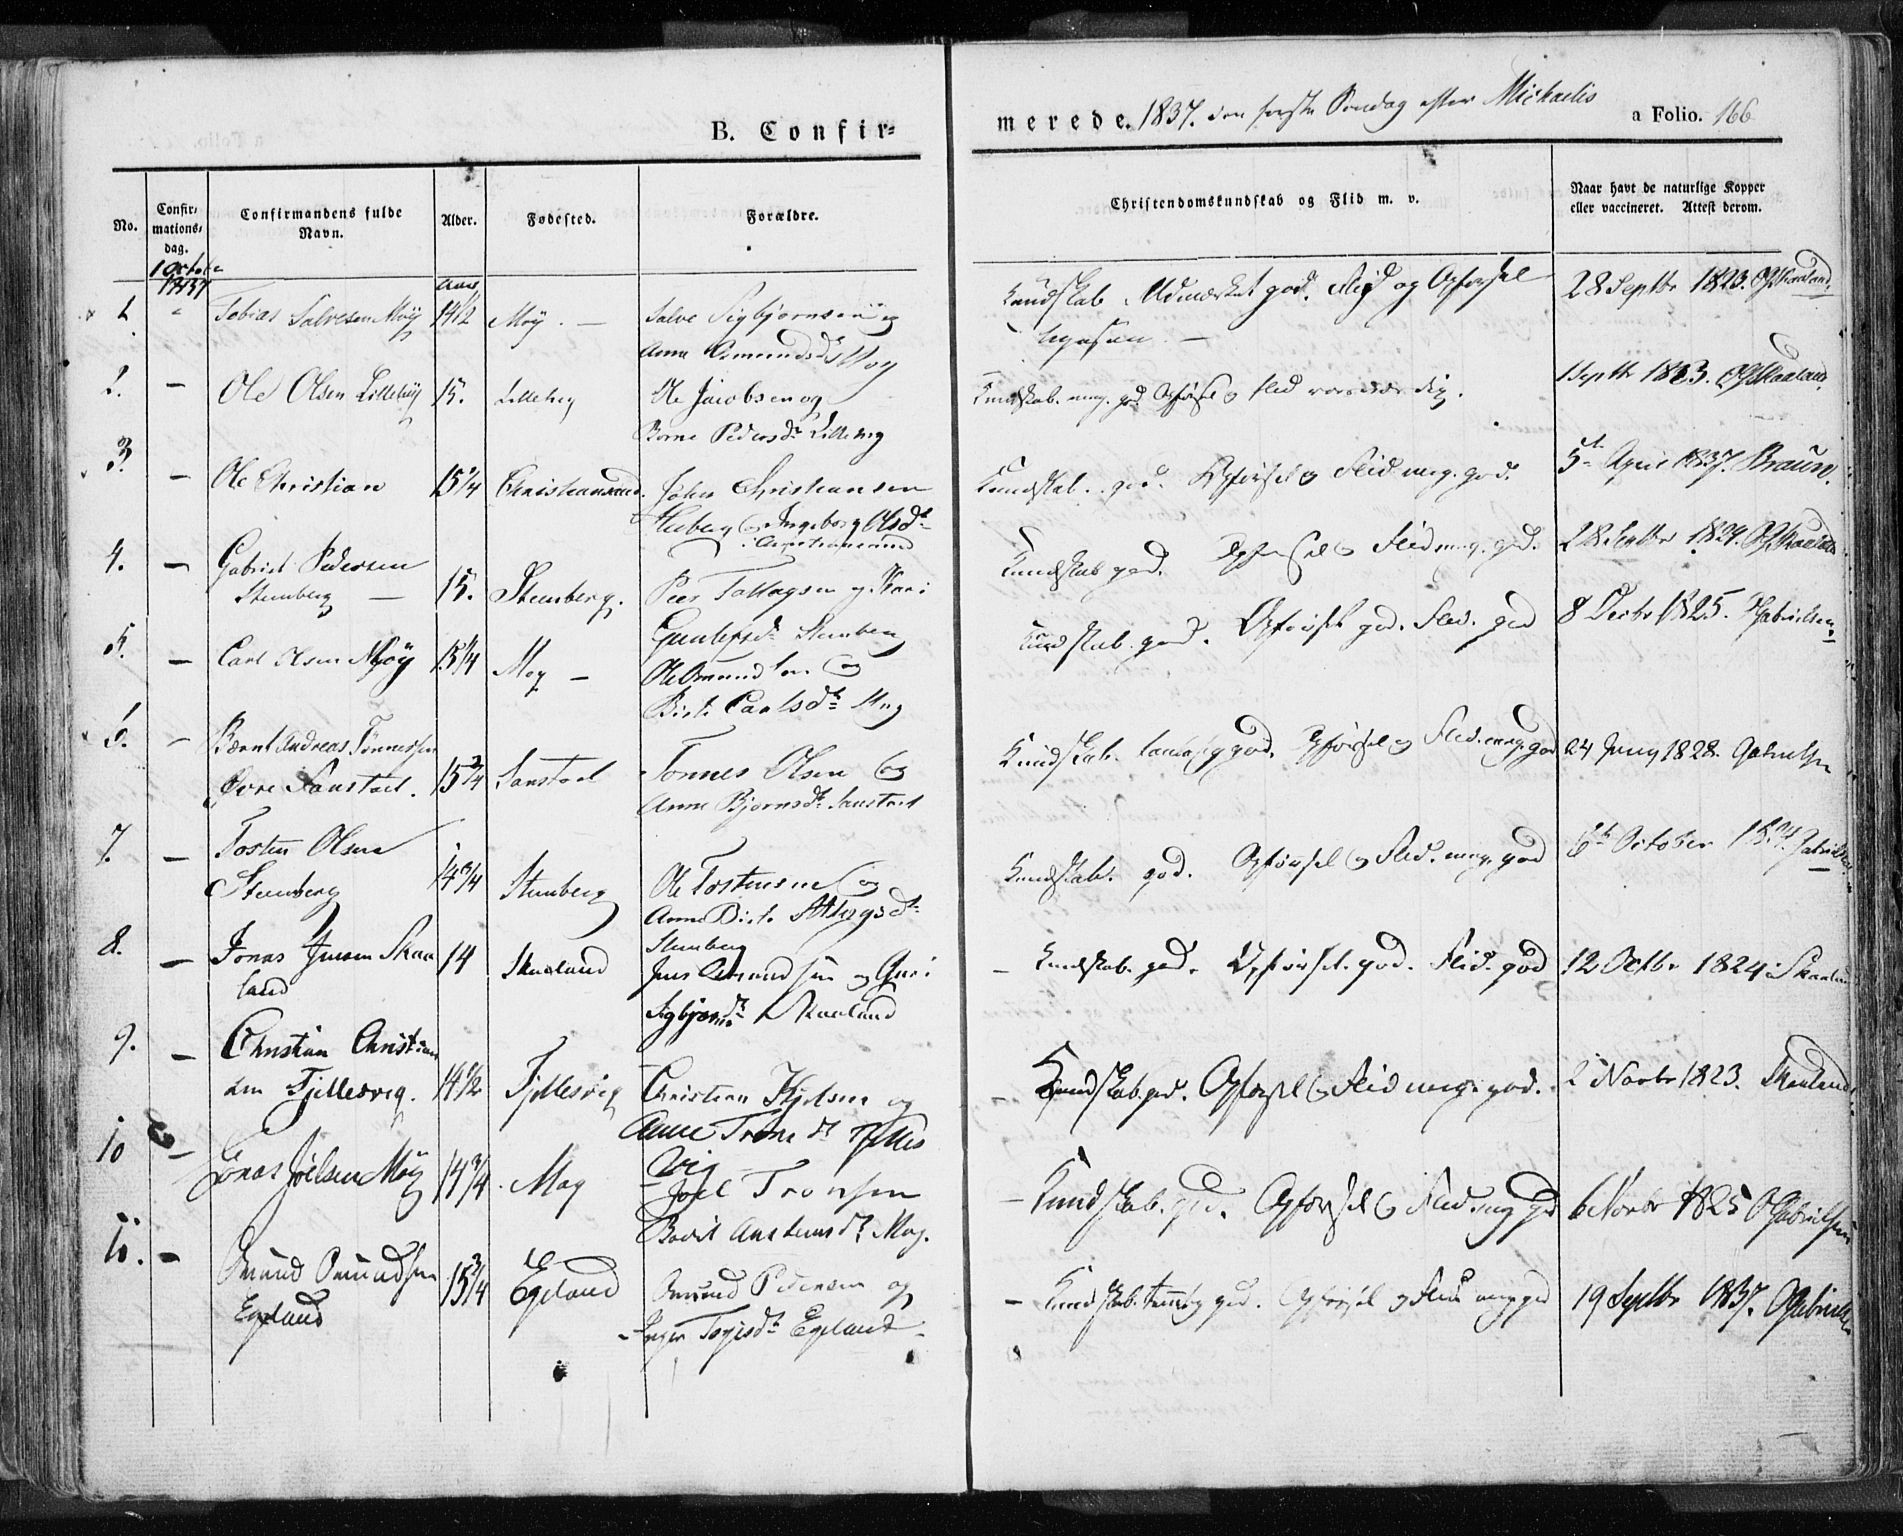 B. Confir=
merede. 1837. den første Søndag efter Michaelis
a Folio. 166
No.
Confir-
mations-
dag.
Confirmandens fulde
Navn.
Alder.
Fødested.
Forældre.
Christendomskundskab og Flid m. v.
Naar havt de naturlige Kopper
eller vaccineret. Attest derom.
1 Octobr
1837
Aar
1. Tobias Salvesen Moÿ 14 1/2 Moÿ. — Salve Sigbjørnsen og
Anne Omundsd. Moy
Kundskab Udmærket god. Flid og Opførsel
28 Septbr 1823. Skaaland
2. — Ole Olsen Lillehÿ 15. Lillehey Ole Jacobsen og
Berne Pedersdtr
Kundskab. meg. god Opførsel og Flid
1 Septbr Skaaland
3. — Ole Christian 15 1/4 Christiansand. John Christiansen
Ingeborg Olsdt
Christiansand
Kundskab. god. Opførsel og Flid meg. god.
5t April 1837. Braun.
4. — Gabriel Pedersen
Stenberg — 15. Stenberg. Peer Tallagsen og Kari
Gunlefsd. Stenberg
Kundskab god. Opførsel og Flid meg. god.
28 Septbr Skaaland
5. — Carl Olsen Moÿ 15 1/4 Moy — Ole Omundsen og
Birte Carlsdtr Moy
Kundskab god. Opførsel god. Flid. god
8 Decbr 1825. Gabrielsen
6. — Bernt Andreas Tønnessen
Øvre Sanstøel. 15 3/4 Sanstøel Tønnes Olsen og
Anne Bjørnsdt Sanstøel
Kundskab. temmelig god. Opførsel og Flid. meg. god
24 Juny 1828. Gabrielsen
7. — Tosten Olsen
Stenberg 14 3/4 Stenberg Ole Tostensen og
Anne Birte Attlagsdt
Stenberg
Kundskab. god. Opførsel og Flid. meg. god
6te October Gabrielsen
8. — Jonas Jensen Skaa
land 14 Skaaland Jens Omundsen og Guri
Sigbjørnsdt Skaaland
— Kundskab. god. Opførsel. god. Flid. god
12 Octbr 1824 Skaaland
9. — Christian Christian
sen Fjellesvig. 14 1/2 Fjellesvig Christian Kjelsen og
Anne Trone dt Fjelles
vig
— Kundskab. god. Opførsel og Flid meg. god.
2 Novbr 1823. Skaaland
10 — Jonas Joelsen Moÿ 14 3/4 Moy Joel Tronsen
Berit Anstensdt Moy.
— Kundskab. god. Opførsel og Flid. meg god
6 Novbr 1825 Gabrielsen
11. — Omund Omundsen
Egeland 15 3/4 Egeland Omund Pedersen og
Inger Egeland
— Kundskab. temmelig god. Opførsel og Flid meg god
19 Septbr 1837. Gabrielsen